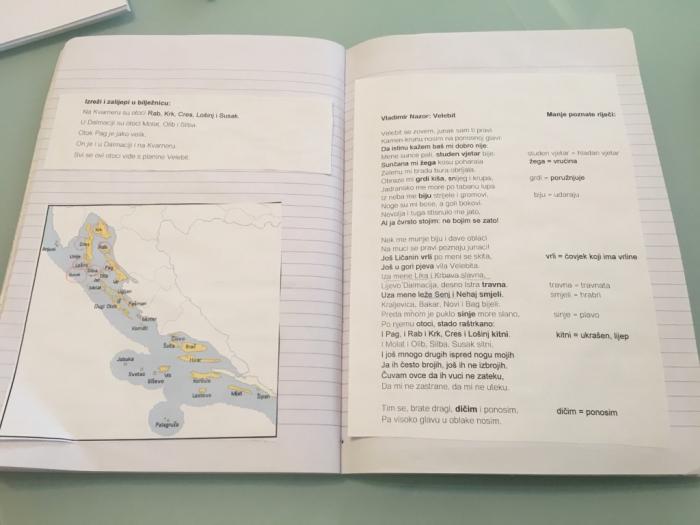 Izreži i zalijepi u bilježnicu:
Na Kvarneru su otoci Rab, Krk, Cres, Lošinj i Susak.
U Dalmaciji su otoci Molat, Olib i Silba.
Otok Pag je jako velik.
On je i u Dalmaciji i na Kvarneru.
Svi se ovi otoci vide s planine Velebit.
Cres
Krk
Rab
Pag
Dugi Otok
Pašman
Jabuka
Svetac
Biševo
Vis
Šolta
Brač
Hvar
Korčula
Lastovo
Mljet
Palagruža
Vladimir Nazor: Velebit
Manje poznate riječi:
Velebit se zovem, junak sam ti pravi
Kamen-krunu nosim na ponosnoj glavi
Da istinu kažem baš mi dobro nije:
Mene sunce pali, studen vjetar bije.
studen vjetar – hladan vjetar
Sunčana mi žega kosu poharala
žega – vrućina
Zelenu mi bradu bura obrijala.
Obraze mi grdi kiša, snijeg i krupa,
grdi – poružnjuje
Jadransko me more po tabanu lupa
Iz neba me biju strijele i gromovi,
biju – udaraju
Noge su mi bose, a goli bokovi.
Nevolja i tuga stisnulo me jato,
Al ja čvrsto stojim: ne bojim se zato!
Nek me munje biju i dave oblaci
Na muci se pravi poznaju junaci!
Još Ličanin vrli po meni se skita,
vrli = čovjek koji ima vrline
Još u gori pjeva vila Velebita.
Uza mene Lika i Krbava slavna,
Lijevo Dalmacija, desno Istra travna.
travna – travnata
Uza mene leže Senj i Nehaj smjeli.
smjeli – hrabri
Kraljevica, Bakar, Novi i Bag bijeli.
Preda mnom je puklo sinje more slano,
sinje – plavo
Po njemu otoci, stado raštrkano:
I Pag, i Rab i Krk, Cres i Lošinj kitni.
kitni = ukrašen, lijep
I Molat i Olib, Silba, Susak sitni.
I još mnogo drugih ispred nogu mojih
Ja ih često brojih, još ih ne izbrojih.
Čuvam ovce da ih vuci ne zateku,
Da mi ne zastrane, da mi ne uteku.
Tim se, brate dragi, dičim i ponosim,
dičim = ponosim
Pa visoko glavu u oblake nosim.